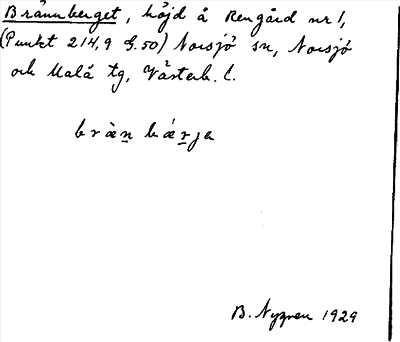 Brännberget, höjd å Rengård nr 1,
(Punkt 214,9 G.50) Norsjö sn, Norsjö
och Malå tg, Västerb. l.
brän bärja
B. Nygren 1929